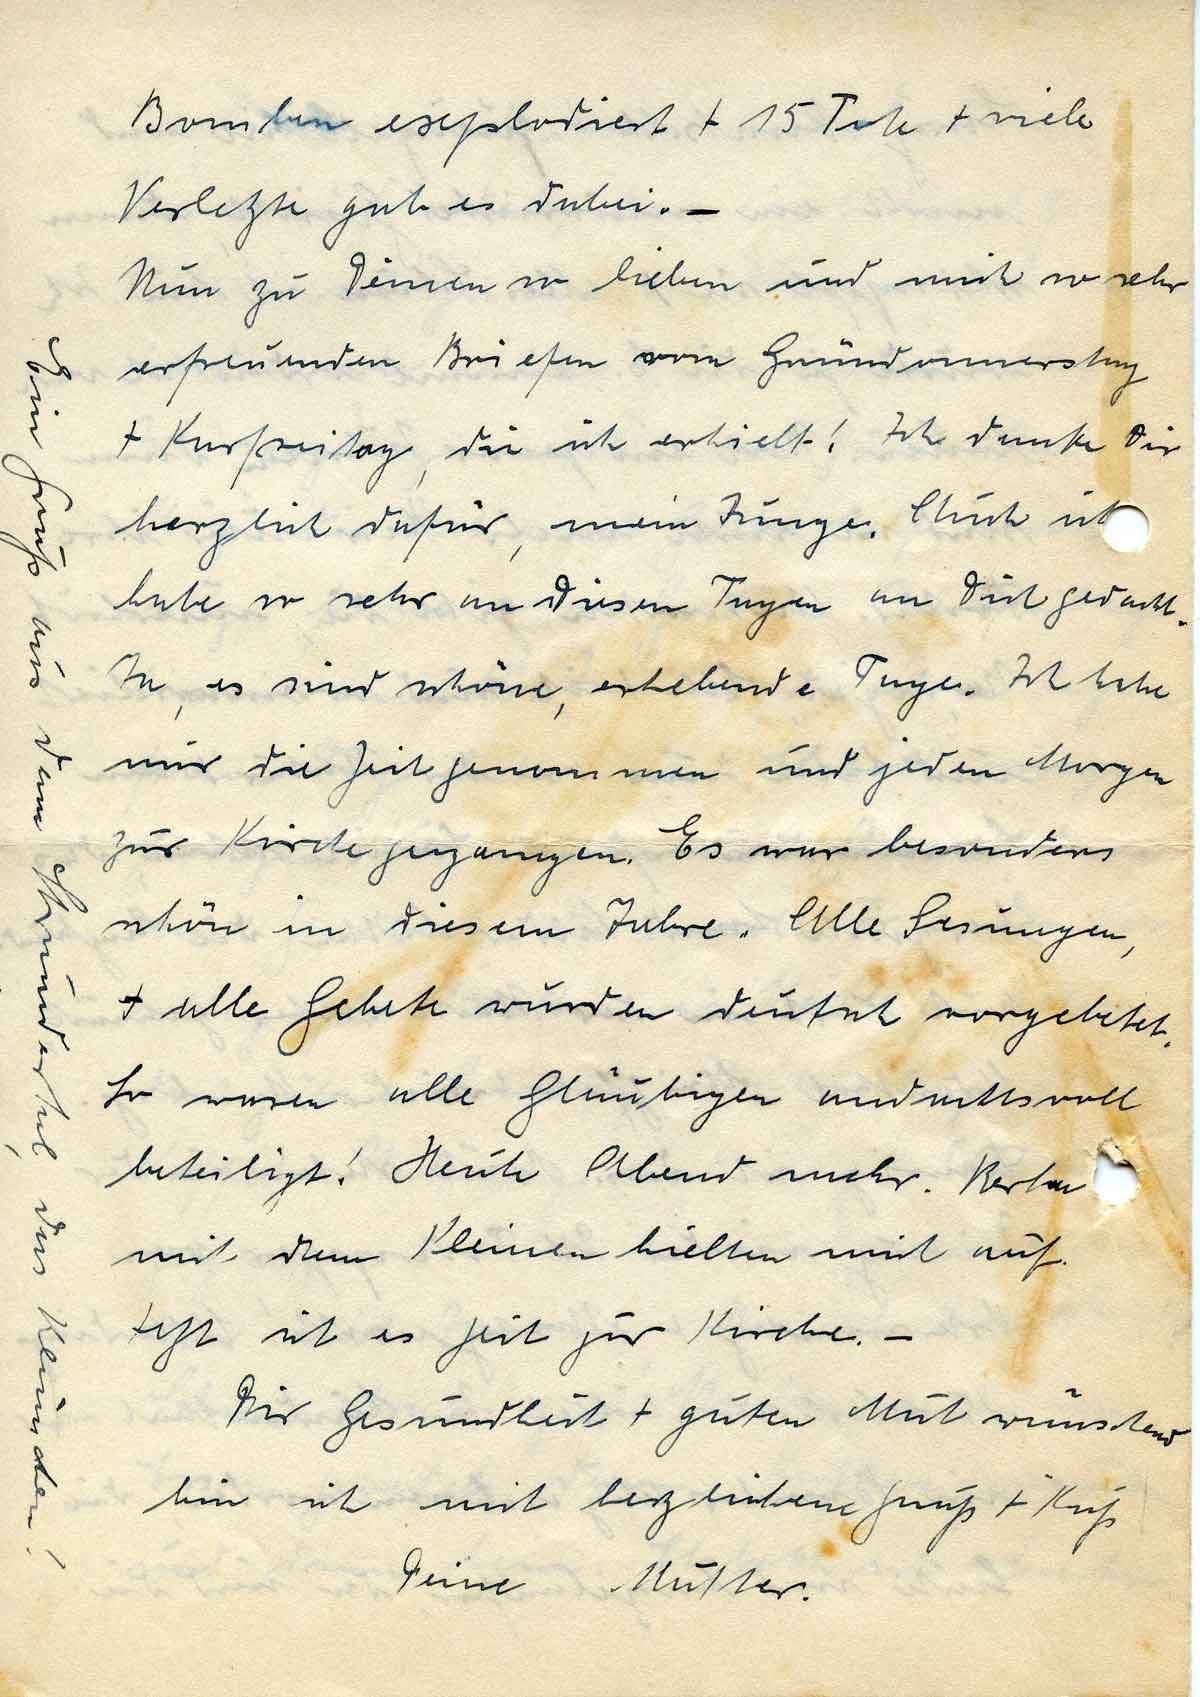 Bomben explodiert + 15 Tote + viele
Verletzte gab es dabei. –
Nun zu Deinen so lieben und mich so sehr
erfreuenden Briefen vom Gründonnerstag
+ Karfreitag, die ich erhielt! Ich danke Dir
herzlich dafür, mein Junge. Auch ich
habe so sehr an diesen Tagen an Dich gedacht.
Ja, es sind schöne, erhebende Tage. Ich habe
mir die Zeit genommen und jeden Morgen
zur Kirche gegangen. Es war besonders
schön in diesem Jahre. Alle Lesungen,
+ alle Gebete wurden deutsch vorgebetet.
So waren alle Gläubigen andachtsvoll
beteiligt! Heute Abend mehr.
mit dem Kleinen hielten mich auf.
Jetzt ist es Zeit zur Kirche. –
Dir Gesundheit + guten Mut wünschend
bin ich mit herzlichem Gruß + Kuß
Deine Mutter.
Ein Gruß aus dem Strundertal, das Kleinchen!